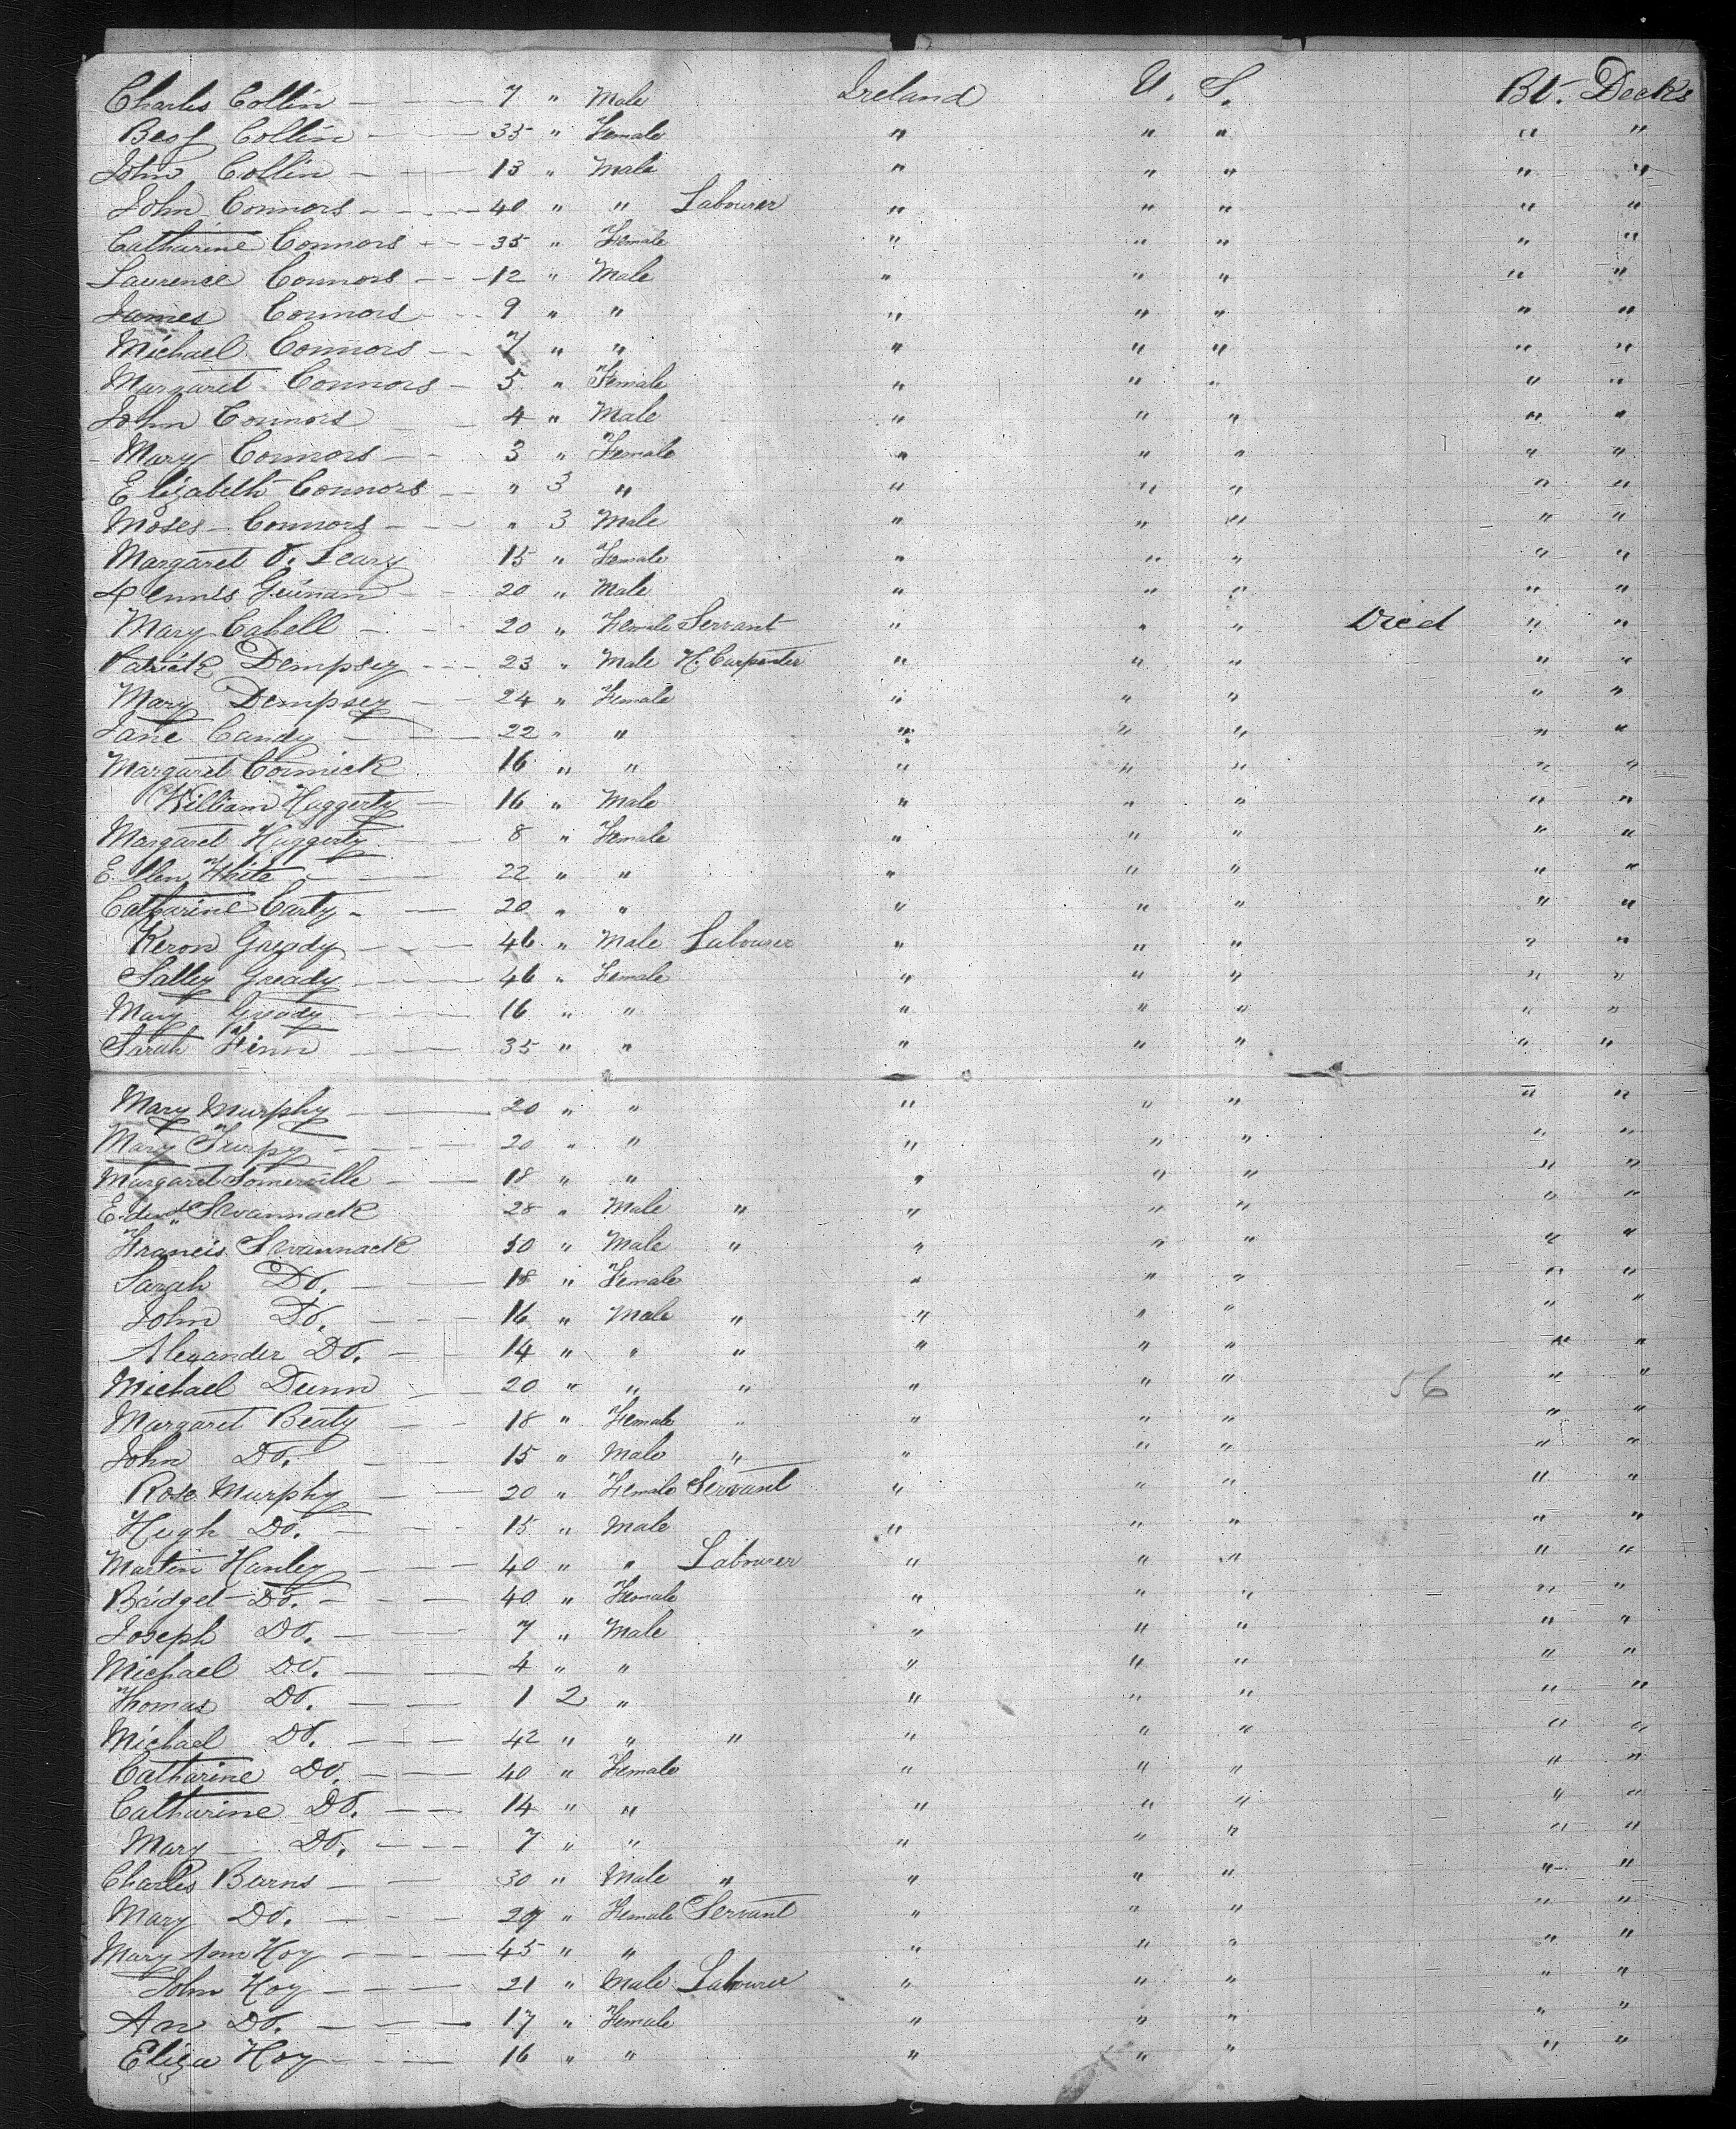 Charles Collin — — 7 " Male Ireland U. S. Bt. Decks
Bess Collin — — 35 " Female " " " " "
John Collin — — 13 " Male " " " " "
John Connors — — 40 " " Labourer " " " " "
Catharine Connors — — 35 " Female " " " " "
Laurence Connors — — 12 " Male " " " " "
James Connors — — 9 " " " " " " "
Michael Connors — — 7 " " " " " " "
Margaret Connors — 5 " Female " " " " "
John Connors — — 4 " Male " " " " "
Mary Connors — — 3 " Female " " " " "
Elizabeth Connors — " 3 " " " " " "
Moses Connors — — " 3 Male " " " " "
Margaret O. Leary 15 " Female " " " " "
Dennis Guinan — 20 " Male " " " " "
Mary Cabell — — 20 " Female Servant " " " Died " "
Patrick Dempsey — — 23 " Male H. Carpenter " " " " "
Mary Dempsey — 24 " Female " " " " "
Jane Candy — — 22 " " " " " " "
Margaret Cormick 16 " " " " " " "
William Haggerty — 16 " Male " " " " "
Margaret Haggerty — 8 " Female " " " " "
Ellen White — — 22 " " " " " " "
Catharine Carty — — 20 " " " " " " "
Keron Gready — — 46 " Male Labourer " " " " "
Salley Gready — — 46 " Female " " " " "
Mary Gready — — 16 " " " " " " "
Sarah Finn — — 35 " " " " " " "
Mary Murphy — — 20 " " " " " " "
Mary Turpy — — 20 " " " " " " "
Margaret Somerville — — 18 " " " " " " "
Edwd Swannack 28 " Male " " " " " "
Francis Swannack 50 " Male " " " " " "
Sarah Do. — — 18 " Female " " " " "
John Do. — — 16 " Male " " " " " "
Alexander Do. — — 14 " " " " " " " "
Michael Dunn — — 20 " " " " " " 56 " "
Margaret Beaty — — 18 " Female " " " " " "
John Do. — — 15 " Male " " " " " "
Rose Murphy — — 20 " Female Servant " " " " "
Hugh Do. — — 15 " Male " " " " "
Martin Hanley — — 40 " " Labourer " " " " "
Bridget Do. — — 40 " Female " " " " "
Joseph Do. — — 7 " Male " " " " "
Michael Do. — — 4 " " " " " " "
Thomas Do. — — 1 2 " " " " " "
Michael Do. — — 42 " " " " " " " "
Catharine Do. — — 40 " Female " " " " "
Catharine Do. — — 14 " " " " " " "
Mary Do. — — 7 " " " " " " "
Charles Burns — — 30 " Male " " " " " "
Mary Do. — — 27 " Female Servant " " " " "
Mary Ann Hoy — — 45 " " " " " " "
John Hoy — — 21 " Male Labourer " " " " "
An Do. — — 17 " Female " " " " "
Eliza Hoy — — 16 " " " " " " "